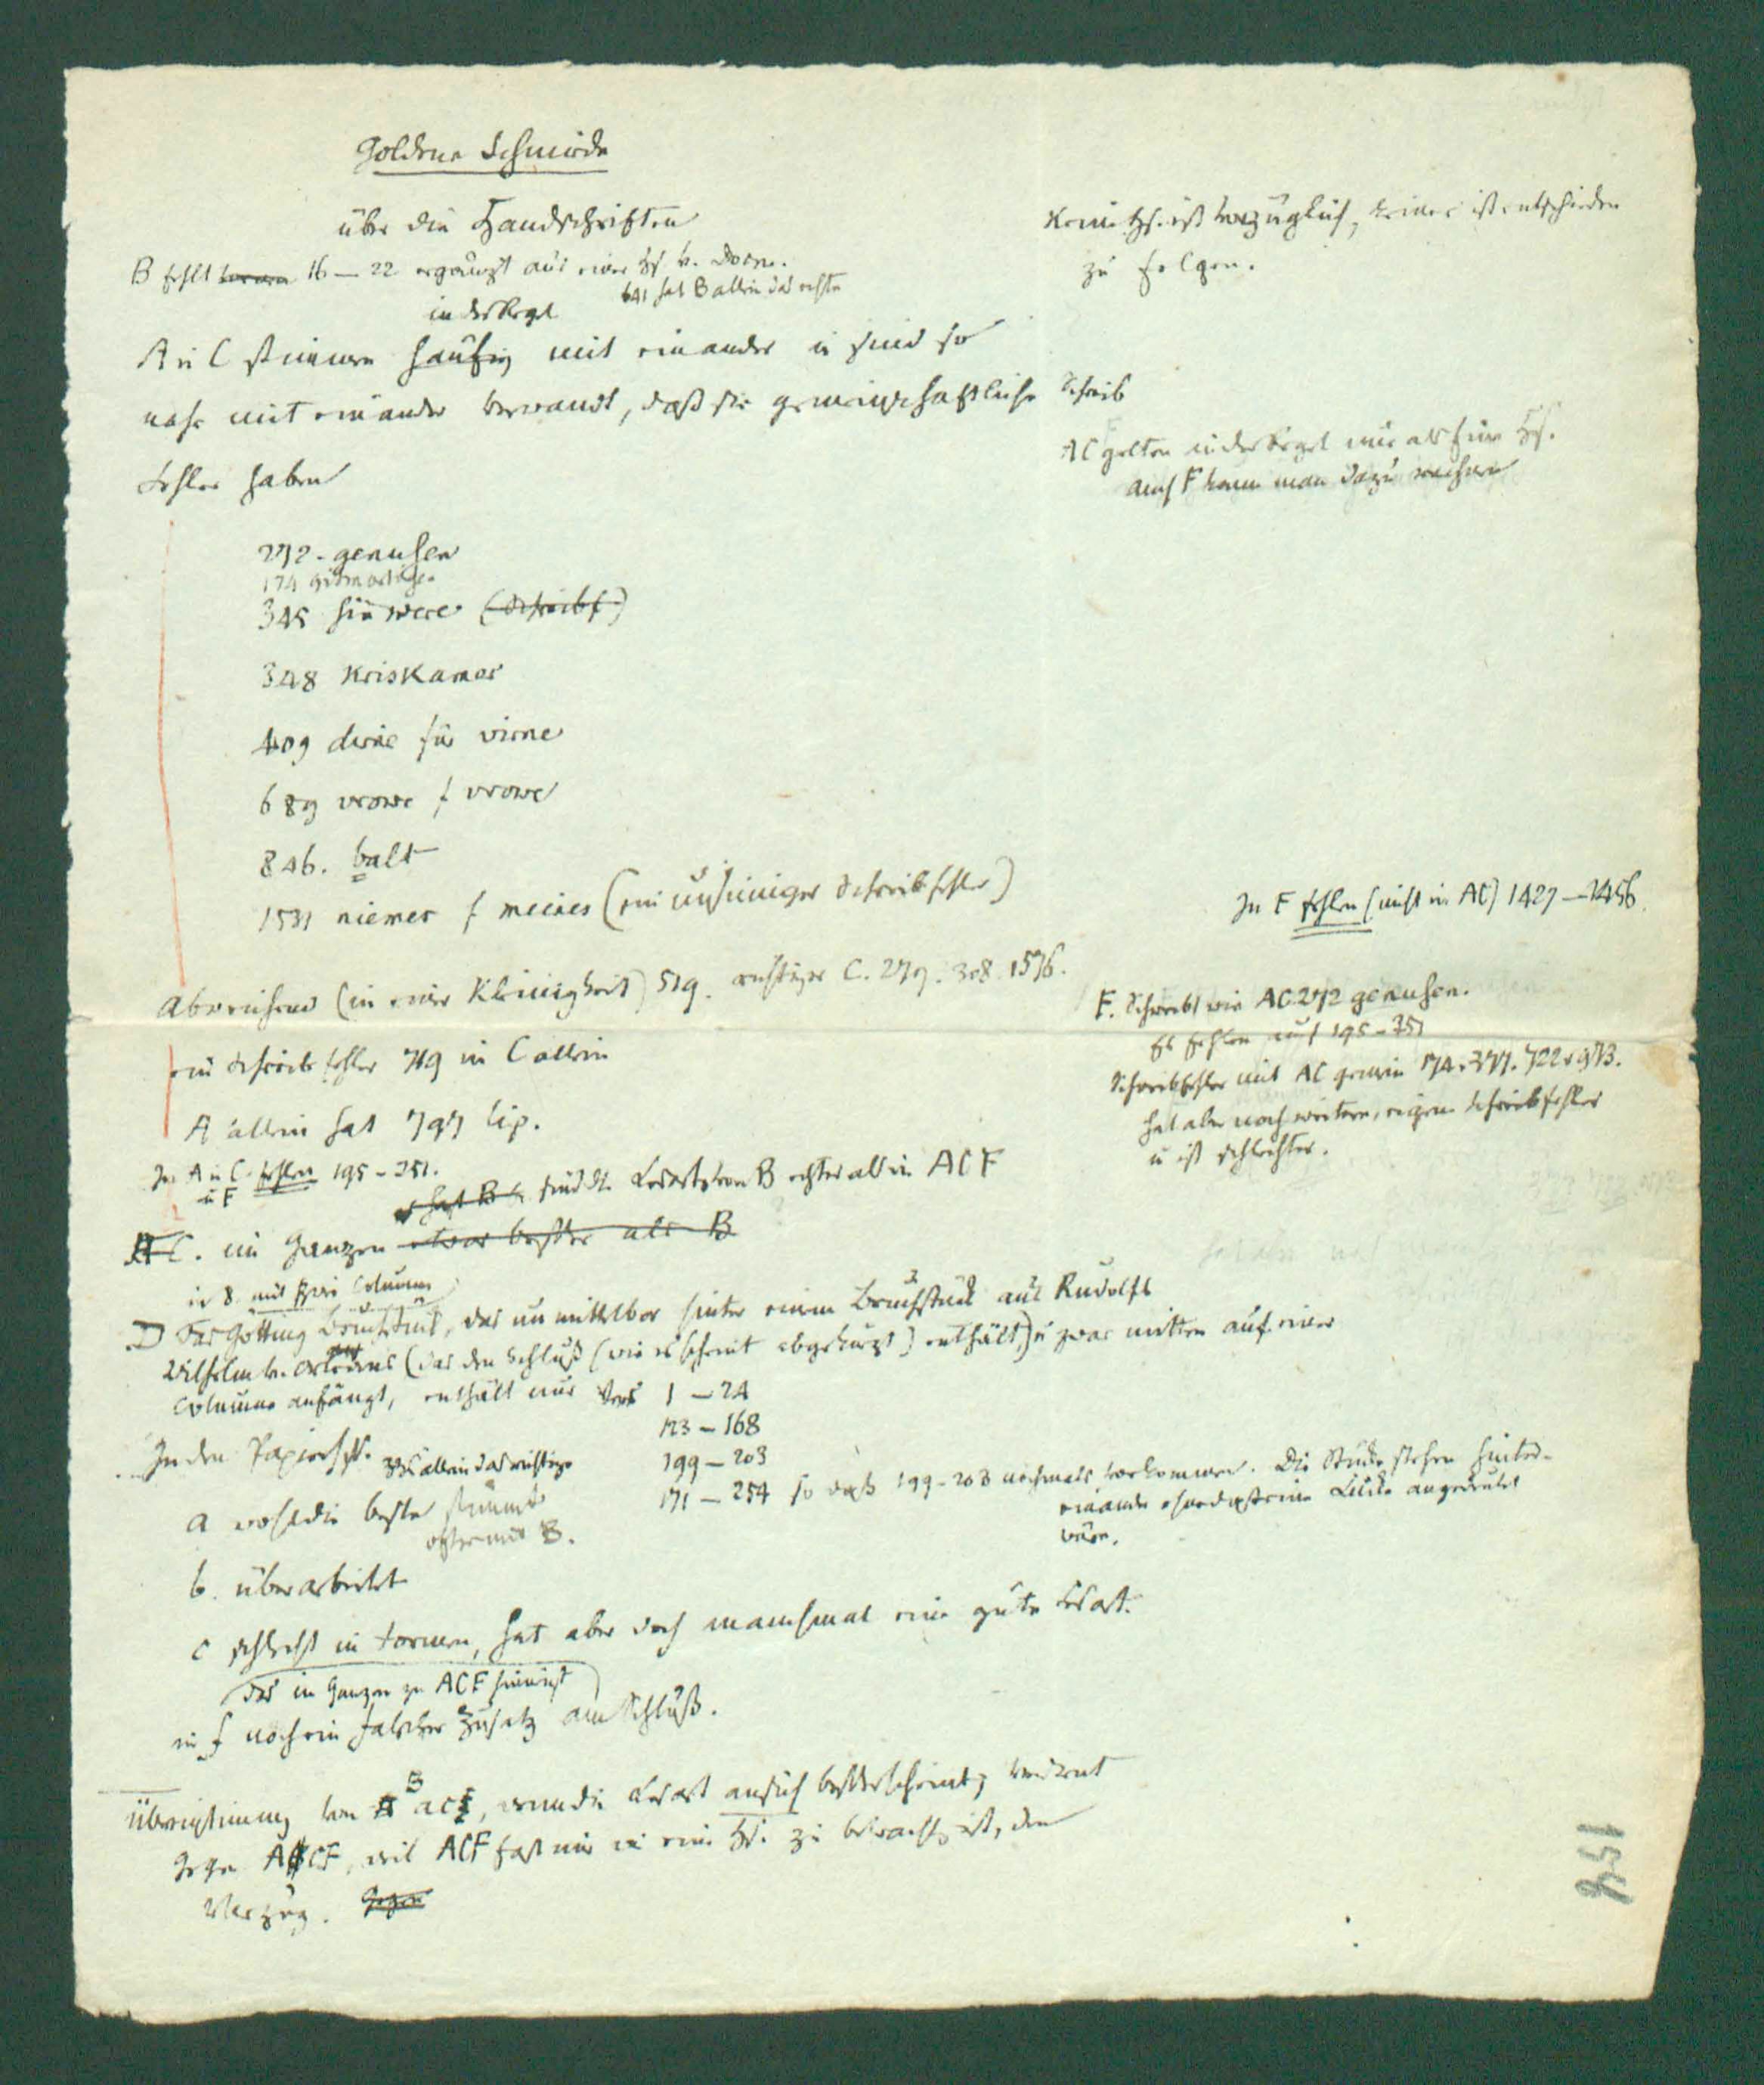 Goldene Schmiede
über die Handschriften
B fehlt 16 — 22 ergänzt aus einer Hs v. Docen.
641 hat B allein das echte
in der Regel
A u C stimmen häufig mit einander u sind so
nahe mit einander verwandt, daß sie gemeinschaftliche Schreib
fehler haben
272. genuhen
174
345 hin were (Schreibf)
348 Kriskamer
409 dirne für virne
689 vrowe f vrowe
846. balt
1531 niemer f meines (ein unsinniger Schreibfehler)
Abweichend (in einer Kleinigkeit) 519. richtiger C. 279. 308. 1576.
ein Schreibfehler 719 in C allein
A allein hat 797 lip.
In A u C fehlen 195 – 351.
u F
sind die Lesarten von B echter als in ACF
AC. im Ganzen etwas besser als B
in 8 mit zwei Columnen
D Das Götting Bruchstück, das unmittelbar hinter einem Bruchstück aus Rudolfs
Wilhelm v. Orleans (das den Schluß (wie es scheint abgekürzt) enthält) u zwar mitten auf einer
Columne anfängt, enthält nur Vers 1 — 24
123 — 168
199 — 203
171 — 254 so daß 199-203 nochmals vorkommen. Die Stücke stehen hinter-
einander ohne daß eine Lücke angedeutet
wäre.
In den Papierhss.
allein das richtige
a wohl die beste stimmt
öfter mit B.
b. überarbeitet
c schlecht in Formen, hat aber doch manchmal eine gute Lesart.
das im Ganzen zu ACF hinneigt
in f noch ein falscher Zusatz am Schluß.
Übereinstimmung von B acf, wenn die Lesart an sich besser scheint, verdient
gegen ACF, weil ACF fast nur wie eine Hs. zu betrachten ist, den
Vorzug. Gegen
Keine Hs. ist vorzüglich, keiner ist entschieden
zu folgen.
AC gelten in der Regel nur als eine Hs.
auch F kann man dazu rechnen
In F fehlen (nicht in AC) 1427 — 1456.
F. Schreibt wie AC 272 genuhen.
Es fehlen auch 195 – 351
Schreibfehler mit AC gemein 174. 377. 722. 973.
hat aber noch weitere, eigene Schreibfehler
u ist schlechter.